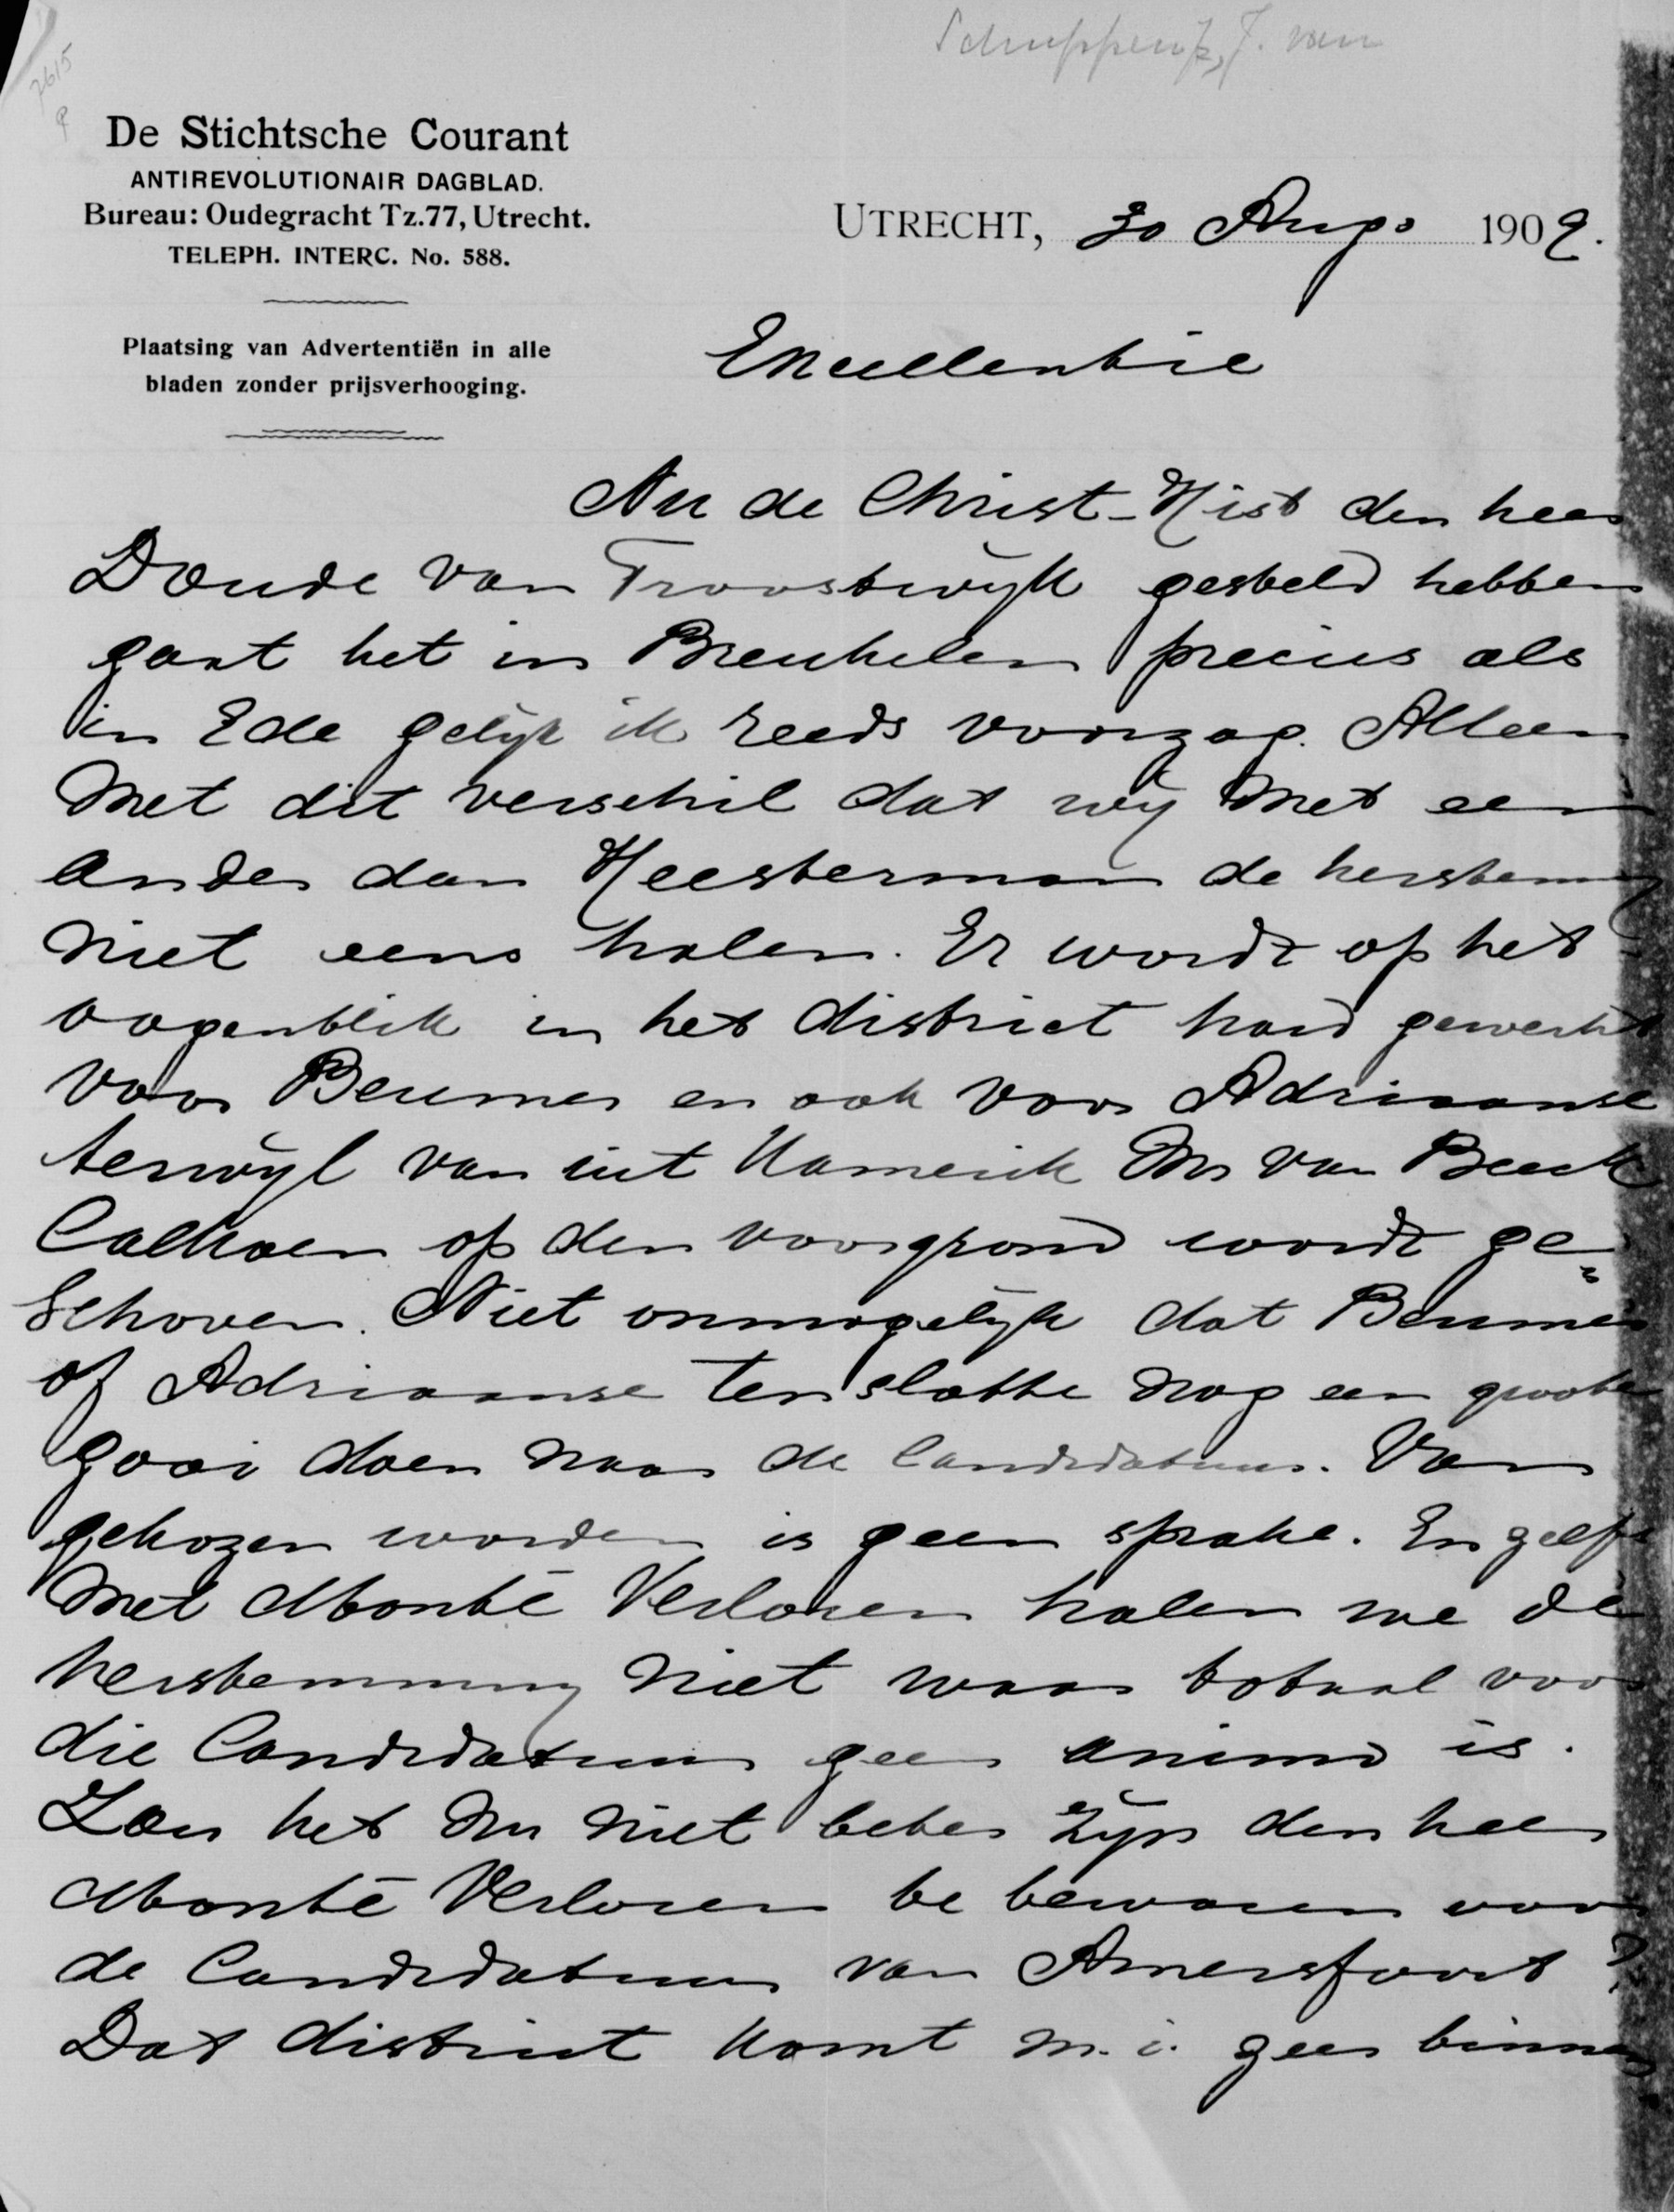 7615
Schuppen Jz, J. van
De Stichtsche Courant
ANTIREVOLUTIONAIR DAGBLAD.
Bureau: Oudegracht Tz.77, Utrecht.
TELEPH. INTERC. No. 588.
UTRECHT, 30 Augs 1909.
Plaatsing van Advertentiën in alle
bladen zonder prijsverhooging.
Excellentie
Nu de Christ-Hist den heer
Doude van Troostwijk gesteld hebben
gaat het in Breukelen precies als
in Ede gelijk ik reeds voorzag. Alleen
met dit verschil dat wij met een
ander dan Heesterman de herstemming
niet eens halen. Er wordt op het
oogenblik in het district hard gewerkt
voor Beumer en ook voor Adriaanse
terwijl van uit Kamerik Mr van Beeck
Calkoen op den voorgrond wordt ge-
schoven. Niet onmogelijk dat Beumer
of Adriaanse ten slotte nog een groote
gooi doen naar de Candidatuur. Van
gekozen worden is geen sprake. En zelfs
met Monté Verloren halen we de
herstemming niet waar totaal voor
die Candidatuur geen animo is.
Zou het nu niet beter zijn den heer
Monté Verloren te bewaren voor
de Candidatuur van Amersfoort?
Dat district komt m.i. geen binnen